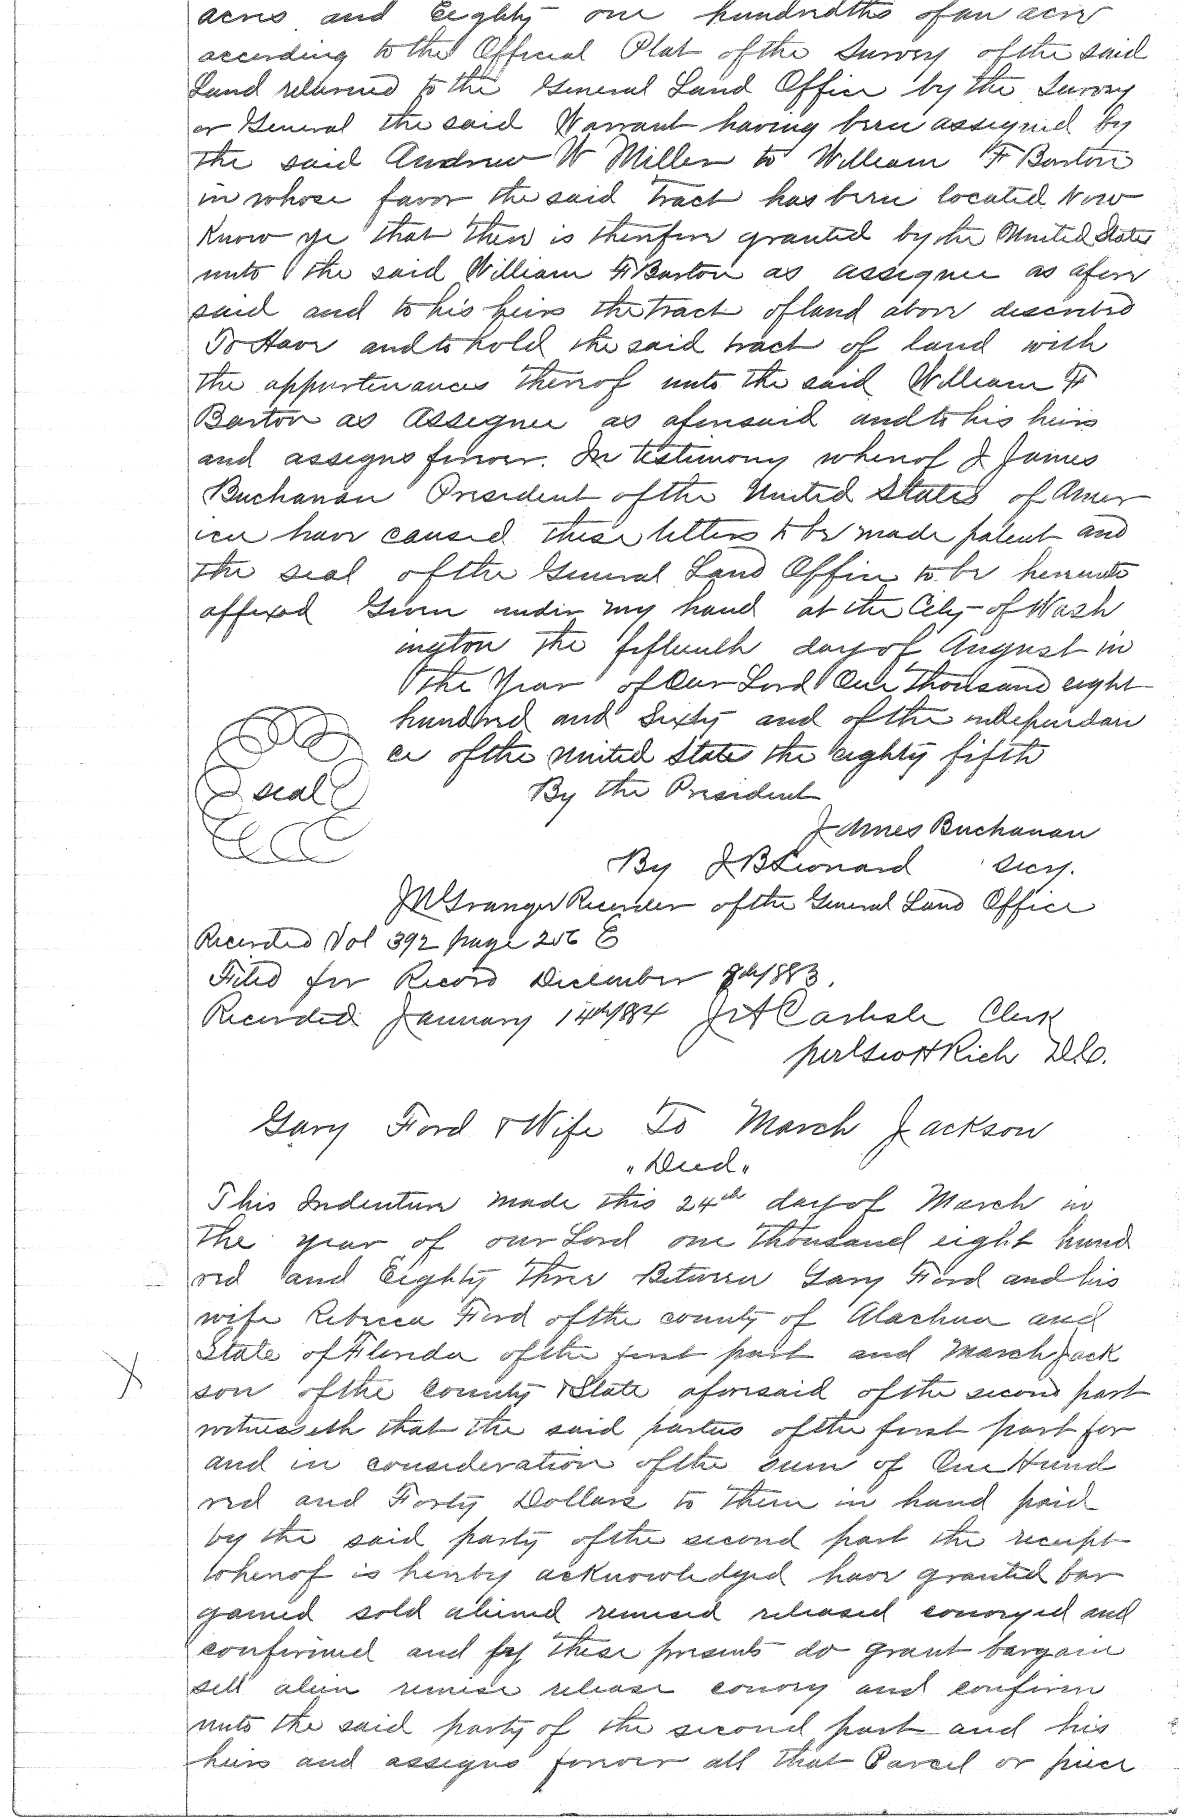 acres and Eighty one hundredths of an acre
according to the Official Plat of the Survey of the said
Land returned to the General Land Office by the Survey
or General the said Warrant having been assigned by
the said Andrew W Miller to William F Barton
in whose favor the said tract has been located Now
Know ye that there is therefore granted by the United States
unto the said William F Barton as assignee as afore
said and to his heirs the tract of land above described
To Have and to hold the said tract of land with
the appurtenances thereof unto the said William F
Barton as Assignee as aforesaid and to his heirs
and assigns forever. In testimony whereof I James
Buchanan President of the United States of Amer
ica have caused these letters to be made patent and
the seal of the General Land Office to be hereunto
affixed Given under my hand at the City of Wash
ington the fifteenth day of August in
the Year of Our Lord One thousand eight
hundred and Sixty and of the independan
ce of the United States the eighty fifth
seal
By the President
James Buchanan
By J B Leonard Secy.
J N Granger Recorder of the General Land Office
Recorded Vol 392 page 256 E
Filed for Record December 8th/1883.
Recorded January 14th/84 J A Carlisle Clerk
per Geo H Rich D.C.
Gary Ford & Wife To March Jackson
"Deed"
This Indenture made this 24th day of March in
the year of our Lord one thousand eight hund
red and Eighty three Between Gary Ford and his
wife Rebecca Ford of the county of Alachua and
State of Florida of the first part and March Jack
son of the County & State aforesaid of the second part
witnesseth that the said parties of the first part for
and in consideration of the sum of One Hund
red and Forty Dollars to them in hand paid
by the said party of the second part the receipt
whereof is hereby acknowledged have granted bar
gained sold aliened remised released conveyed and
confirmed and by these presents do grant bargain
sell alien remise release convey and confirm
unto the said party of the second part and his
heirs and assigns forever all that Parcel or piece